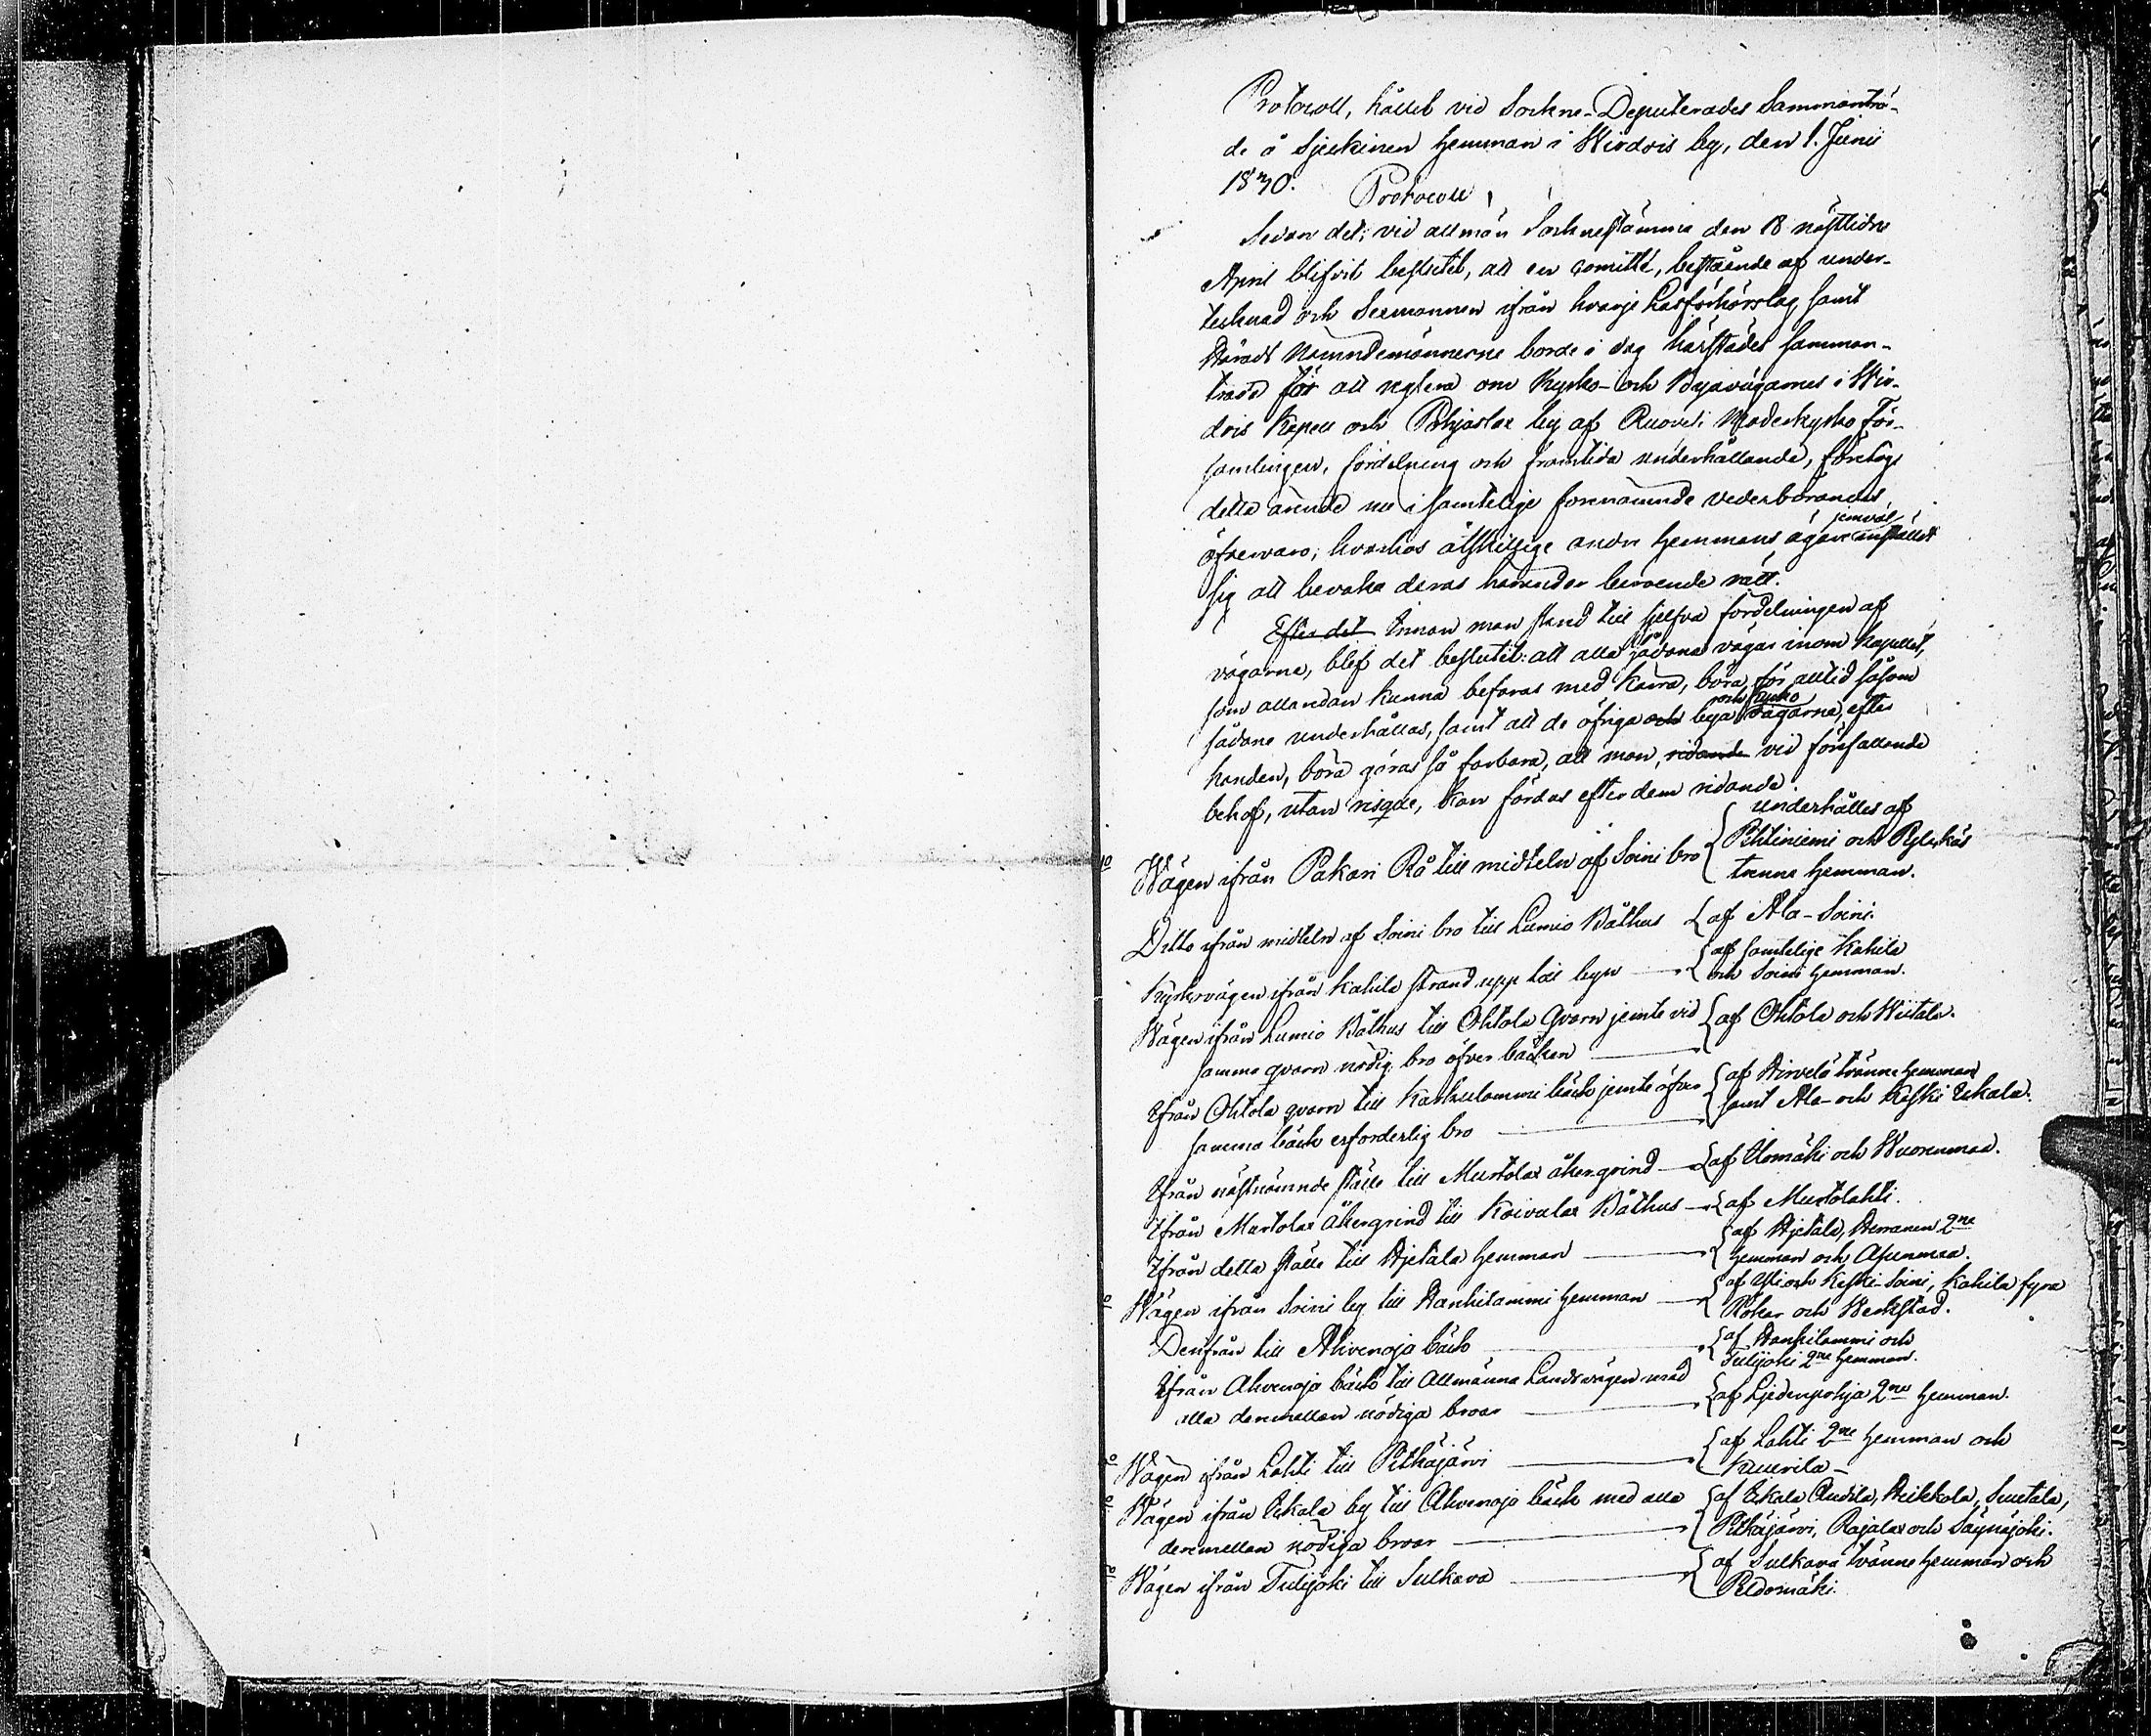 Protocoll, hållet vid Sockne-Deputerades Sammanträ-
de å Sjeckinen hemman i Wirdois by, den 1. Junii
1830. Protocoll
Sedan det, vid allmän Socknestämma den 18 nästledne
April blifvit beslutet, att en Comitté, bestående af under-
tecknad och Sexmannen ifrån hvarje Läsförhörslag samt
Härads Nämndemännerne borde i dag härstädes samman-
träda för att reglera om Kyrko- och Byavägarnes i Wir-
dois Kapell och Pohjaslax by af Ruovesi Moderkyrko För-
samlingen, fördelning och framtida underhållande, företogs
detta ärende nu i samtelige förenämnde vederbörandes
öfvervaro; hvarhos åtskillige andre hemmans ägare jemväl inställdt
sig att bevaka deras härunder beroende rätt.
Efter det Innan man skred till sjelfva fördelningen af
vägarne, blef det beslutet: att alla sådana vägar inom Kapellet,
som allaredan kunna befaras med kärra, böra för alltid såsom
sådane underhållas, samt att de öfriga och bya och kyrko vägarne, efter
handen, böra göras så farbara, att man, ridande vid förefallande
behof, utan risque, kan färdas efter dem ridande.
Wägen ifrån Pakari Rå till midteln af Soini bro { underhålles af
Pihtiniemi och Rylskäs
trenne hemman.
Ditto ifrån midteln af Soini bro till Lumio Båthus { af Ala-Soini.
Kyrkovägen ifrån Kahila strand upp till byn { af samtelige Kahila
och Soini hemman.
Wägen ifrån Lumio Båthus till Ohtola Qvarn jemte vid { af Ohtola och Wiitala.
samma qvarn nödig bro öfver bäcken
Ifrån Ohtola qvarn till Kaskulammi bäck jemte öfver { af Hirvelä tvänne hemman
samma bäck erforderlig bro samt Ala- och Keski Uskala.
Ifrån näst nämnde ställe till Murtolax åkergrind { af Uomäki och Wuorenmaa.
Ifrån Murtolax åkergrind till Koivulax Båthus { af Murtolahti.
Ifrån detta ställe till Hjetala hemman { af Hjetala, Herranen 2ne
hemman och Asunmaa.
Wägen ifrån Soini by till Hankilammi hemman { af Yli och Keski-Soini, Kahila fyra
Röker och Werkstad.
Derifrån till Ahvenoja bäck { af Hankilammi och
Tulijoki 2ne hemman.
Ifrån Ahvenoja bäck till Allmänna Landsvägen med { af Ljedenpohja 2ne hemman.
alla deremellan nödiga broar
Wägen ifrån Lahti till Pitkäjärvi { af Lahti 2ne hemman och
Kuurila
Wägen ifrån Uskala by till Ahvenoja bäck med alla { af Uskala Audila, Heikkola, Snutala,
deremellan nödiga broar Pitkäjärvi, Rajalax och Säynäjoki.
Wägen ifrån Tulijoki till Sulkava { af Sulkava tvänne hemman och
Peldomäki.